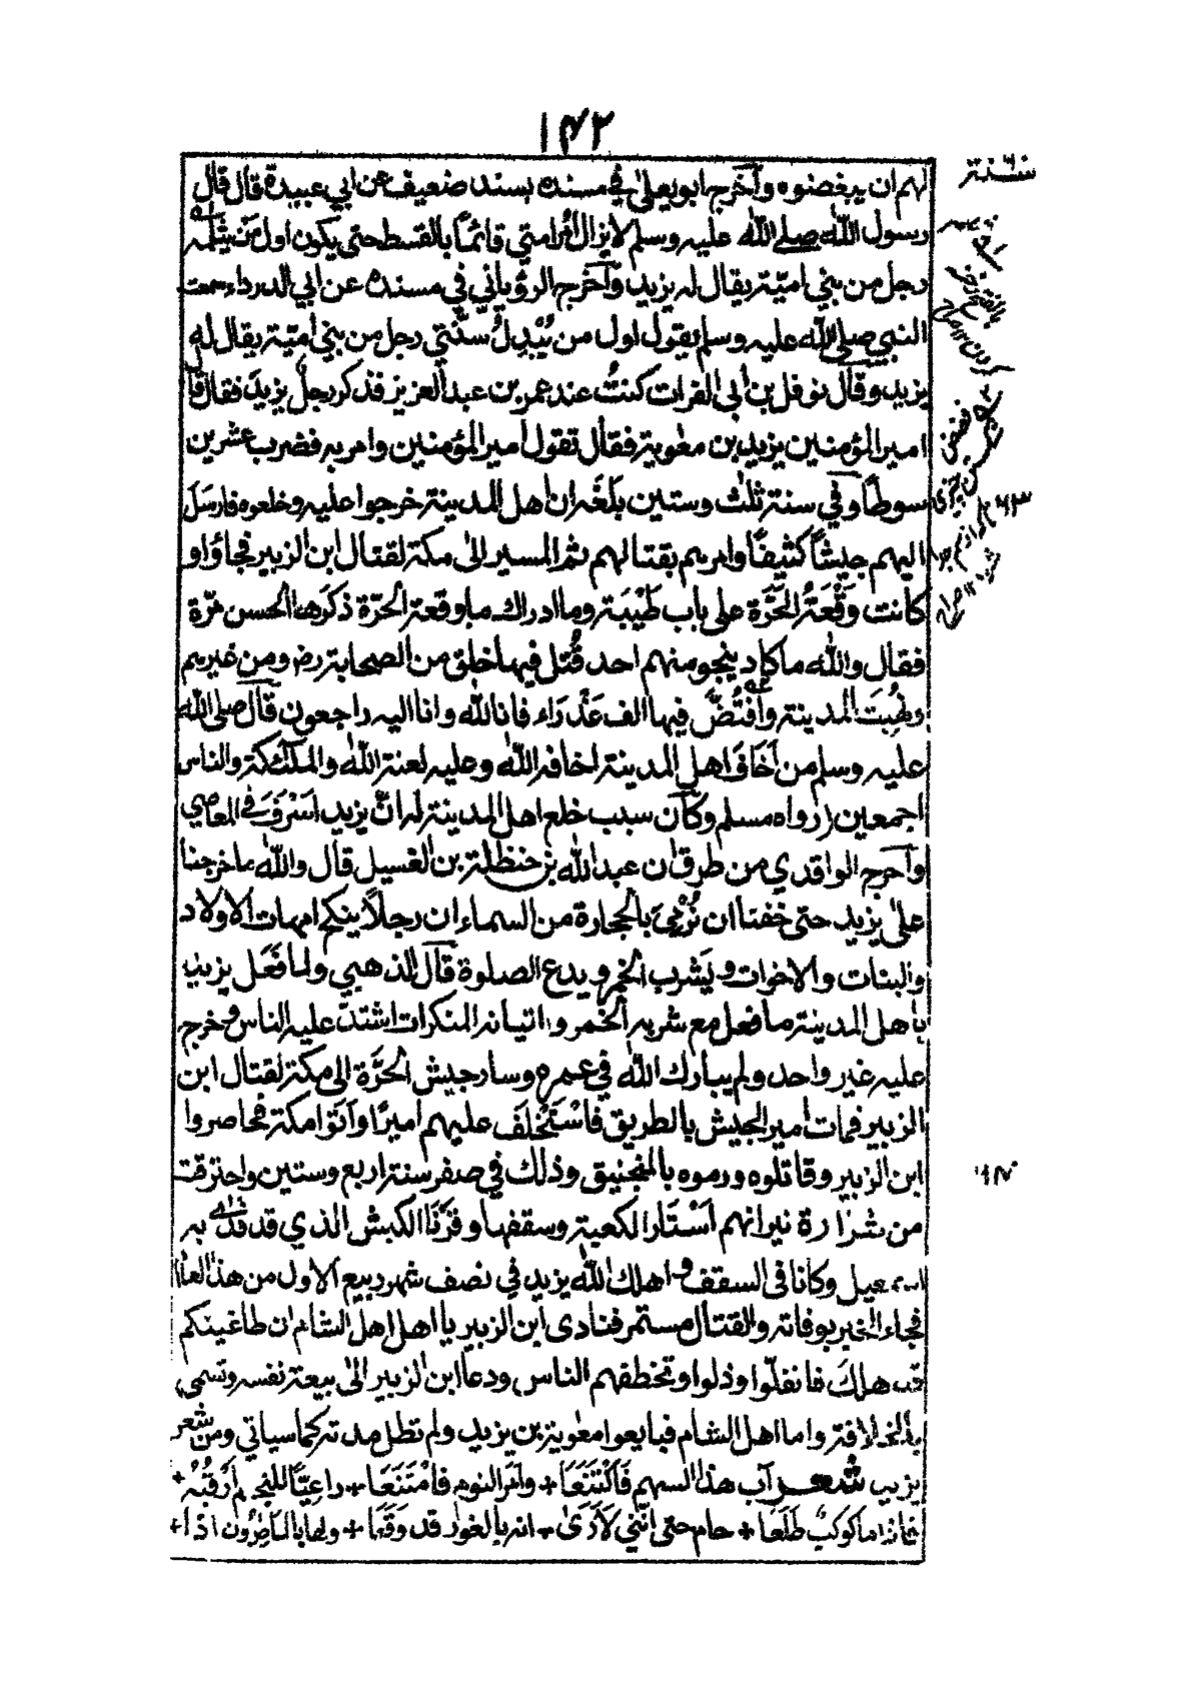 ١٤٢
لهم ان يبغضوه وآخرج ابو يعلى في مسنده بسند ضعيف عن ابي عبيدة قال قال
رسول الله صلے الله عليه وسلم لا يزال امر امتي قائمًا بالقسط حتى يكون اول من يثلمه
رجل من بني اميّة يقال له يزيد وآخرج الرؤياني في مسنده عن ابي الدرداء سمعت
النبي صلى الله عليه وسلم يقول اول من يُبْدِلُ سنّتي رجل من بني اميّة يقال له
يزيد وقال نوفل بن ابي الفرات كنتُ عند عمر بن عبد العزيز فذكر رجل يزيدَ فقال قال
امير المؤمنين يزيد بن معٰوية فقال تقول امير المؤمنين وامر به فضرب عشرين
سوطًا وفي سنة ثلٰث وستين بلَغَه ان اهل المدينة خرجوا عليه وخلعوه فارسَلَ
اليهم جيشًا كثيفًا وامرهم بقتالهم ثم المسير الىٰ مكة لقتال ابن الزبير فجاؤا و
كانت وَقْعَةُ الحَرَّة على باب طَيْبَة وما ادراك ما وقعة الحرّة ذكرها الحسن مرّة
فقال والله ما كاد ينجو منهم احد قُتل فيها خلق من الصحابة رض ومن غيرهم
ونُهِبَت المدينة وافْتُضَّ فيها الف عَذْرَاء فانا لله وانا اليه راجعون قال صلى الله
عليه وسلم من اَخَافَ اهل المدينة اخافه الله وعليه لعنة الله والملٰئكة والناس
اجمعين رواه مسلم وكآن سبب خلع اهل المدينة له ان يزيد اَسْرَفَ في المعاصي
وآخرج الواقدي من طرق ان عبد الله بن حنظلة بن الغسيل قال والله ما خرجنا
علىٰ يزيد حتى خفنا ان نُرْمىٰ بالحجارة من السماء ان رجلاً ينكح امهات الاولاد
والبنات والاخوات ويَشرب الخمر ويدع الصلوة قآل الذهبي ولما فَعَل يزيد
باهل المدينة ما فعل مع شربه الخمر واتيانه المنكرات اشتدّ عليه الناس وخرج
عليه غير واحد ولم يبارك الله في عمره وسار جيش الحَرَّة الى مكة لقتال ابن
الزبير فمات امير الجيش بالطريق فاسْتَخْلَفَ عليهم اميرًا وآتوا مكة فحاصروا
ابن الزبير وقاتلوه ورموه بالمنجنيق وذلك في صفر سنة اربع وستين واحترقت
من شرارة نيرانهم اَسْتَار الكعبة وسقفها وقرْنَا الكبش الذي قد فدي به
اسمٰعيل وكانا في السقف واهلك الله يزيد في نصف شهر ربيع الاول من هذا العام
فجاء الخبر بوفاته والقتال مستمر فنادى ابن الزبير يا اهل اهل الشام ان طاغيتكم
قد هلكَ فانفلّوا وذلوا وتخطفهم الناس ودعا ابن الزبير الىٰ بيعة نفسه وتسمى
بالخلافة واما اهل الشام فبايعوا معٰوية بن يزيد ولم تطل مدته كما سياتي ومن شعر
يزيد شعر آب هذا السهم فَاكْتَنَعَا + واَمَر النوم فامْتَنَعَا + راعيًا للنجم اَرْقُبُهُ +
فاذا ما كوكبٌ طَلَعَا + حام حتى اننّي لَاَرىٰ + انه بالغور قد وَقَعَا + ولها بالماطرون اذا +
سنة ٦٣
٦٤